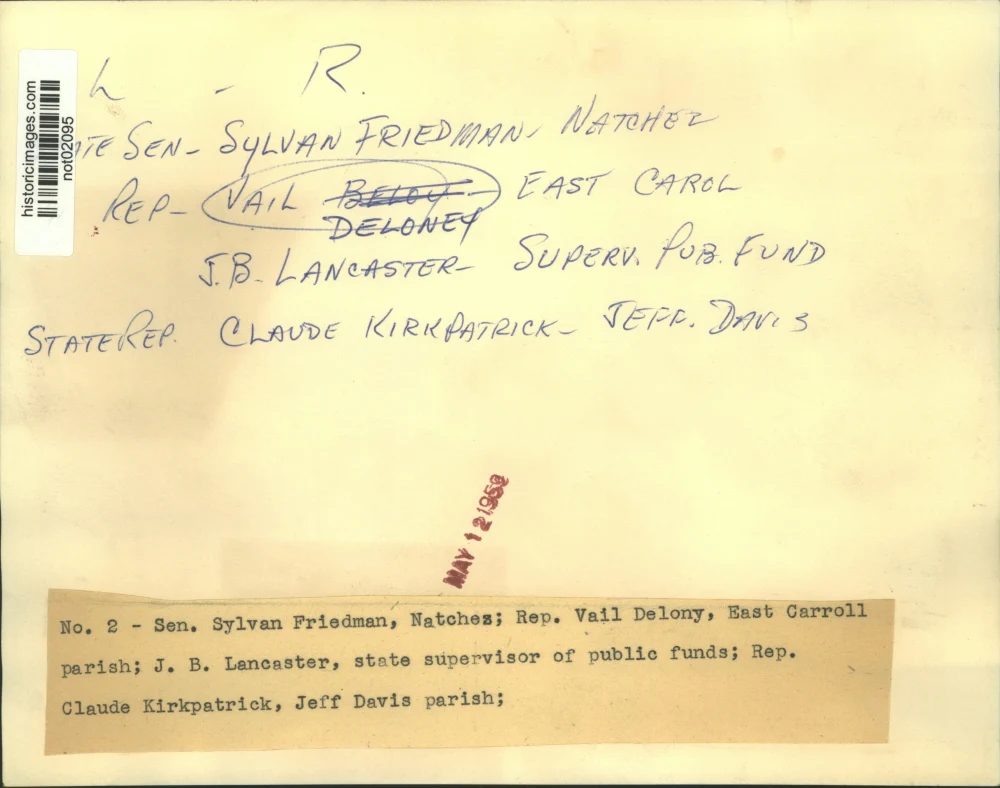 L - R.
historicimages.com
not02095
TE SEN- SYLVAN FRIEDMAN- NATCHEZ
REP- VAIL DELONEY EAST CAROL
J.B. LANCASTER- SUPERV. PUB. FUND
STATE REP. CLAUDE KIRKPATRICK- JEFF. DAVIS
MAY 12 1952
No. 2 - Sen. Sylvan Friedman, Natchez; Rep. Vail Delony, East Carroll
parish; J. B. Lancaster, state supervisor of public funds; Rep.
Claude Kirkpatrick, Jeff Davis parish;